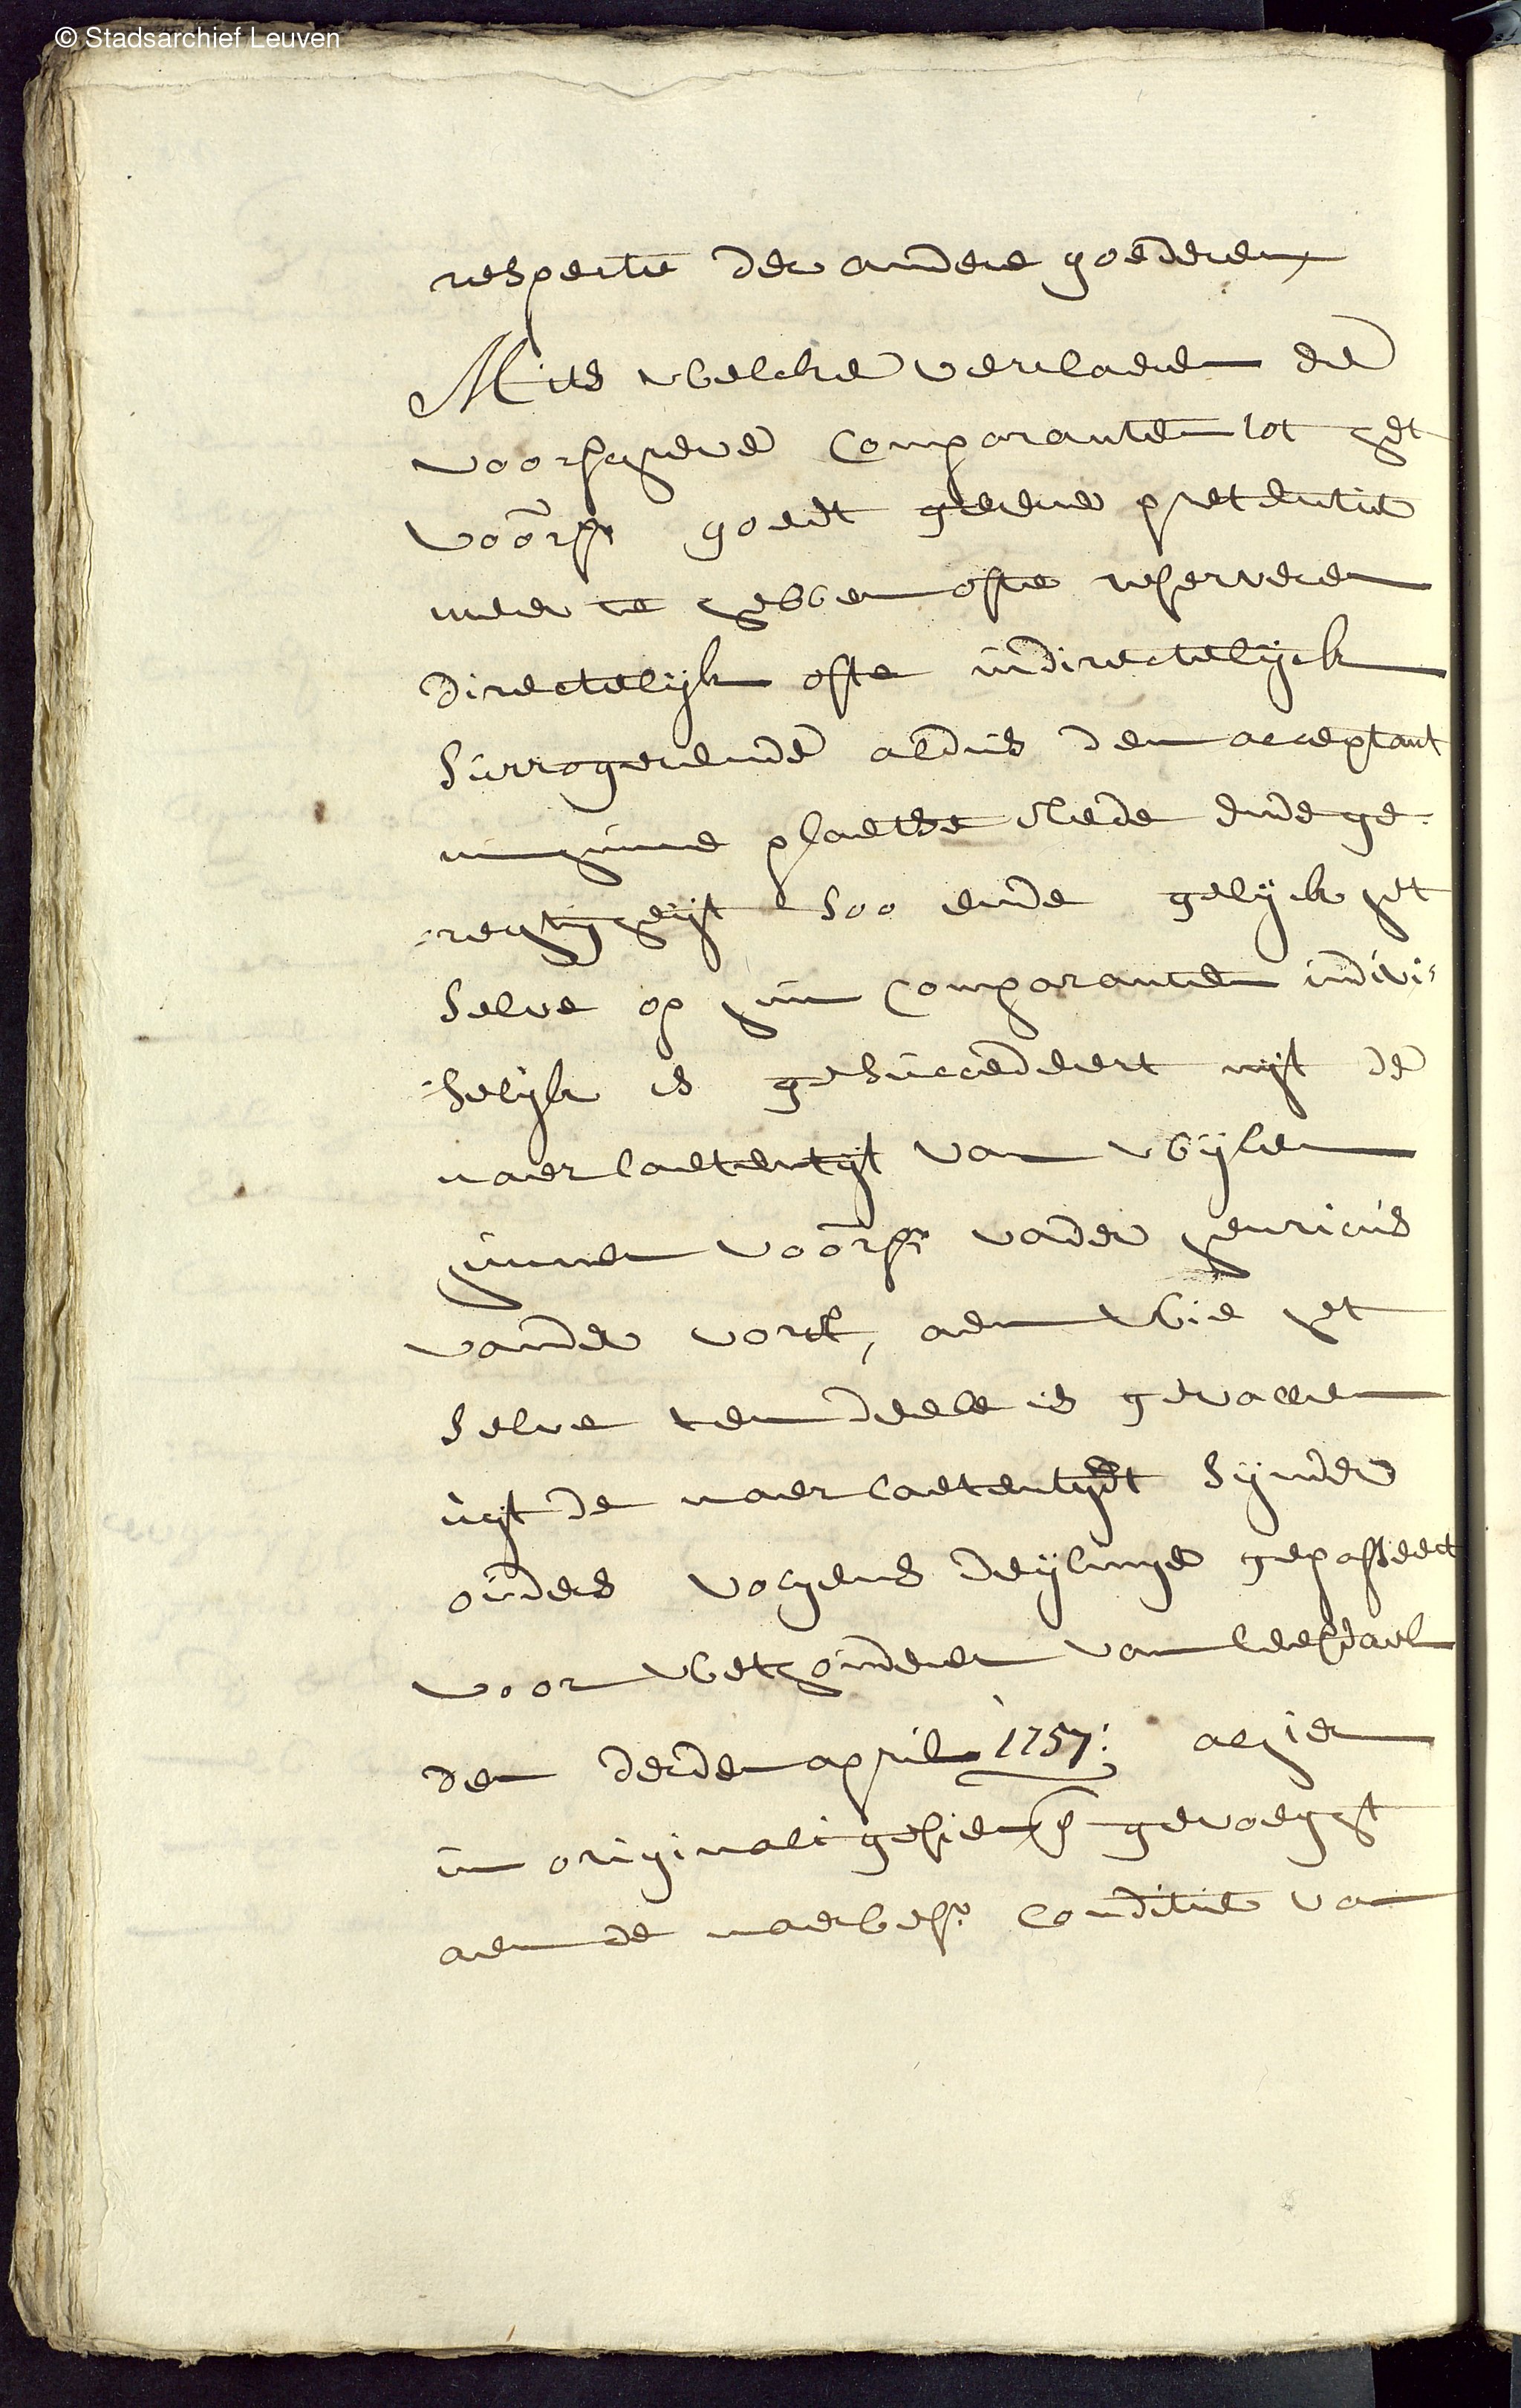 © Stadsarchief Leuven
respectie der andere goederen
Mits welcke verclaeren de
voorschreve comparanten tot het
voorsr goedt geene pretentie
meer te hebben ofte reserveren
directelijk ofte indirectelijck
surrogerende aldus den acceptant
in hunne plaetse stede ende ge-
=regtigheijt soo ende gelijck het
selve op hun comparanten indivi=
=selijk is gesuccedeert uijt de
naerlaetentheijt van wijlen
hunnen voorsr vader henricus
vander vorst, aen wie het
selve ten deele is gevallen
uijt de naerlaetentheydt sijnder
ouders volgens deijlinge gepasseert
voor wethouderen van leefdael
den derden april 1757: alhier
in originali gesien gevoeght
aen de naerbeschr conditie van